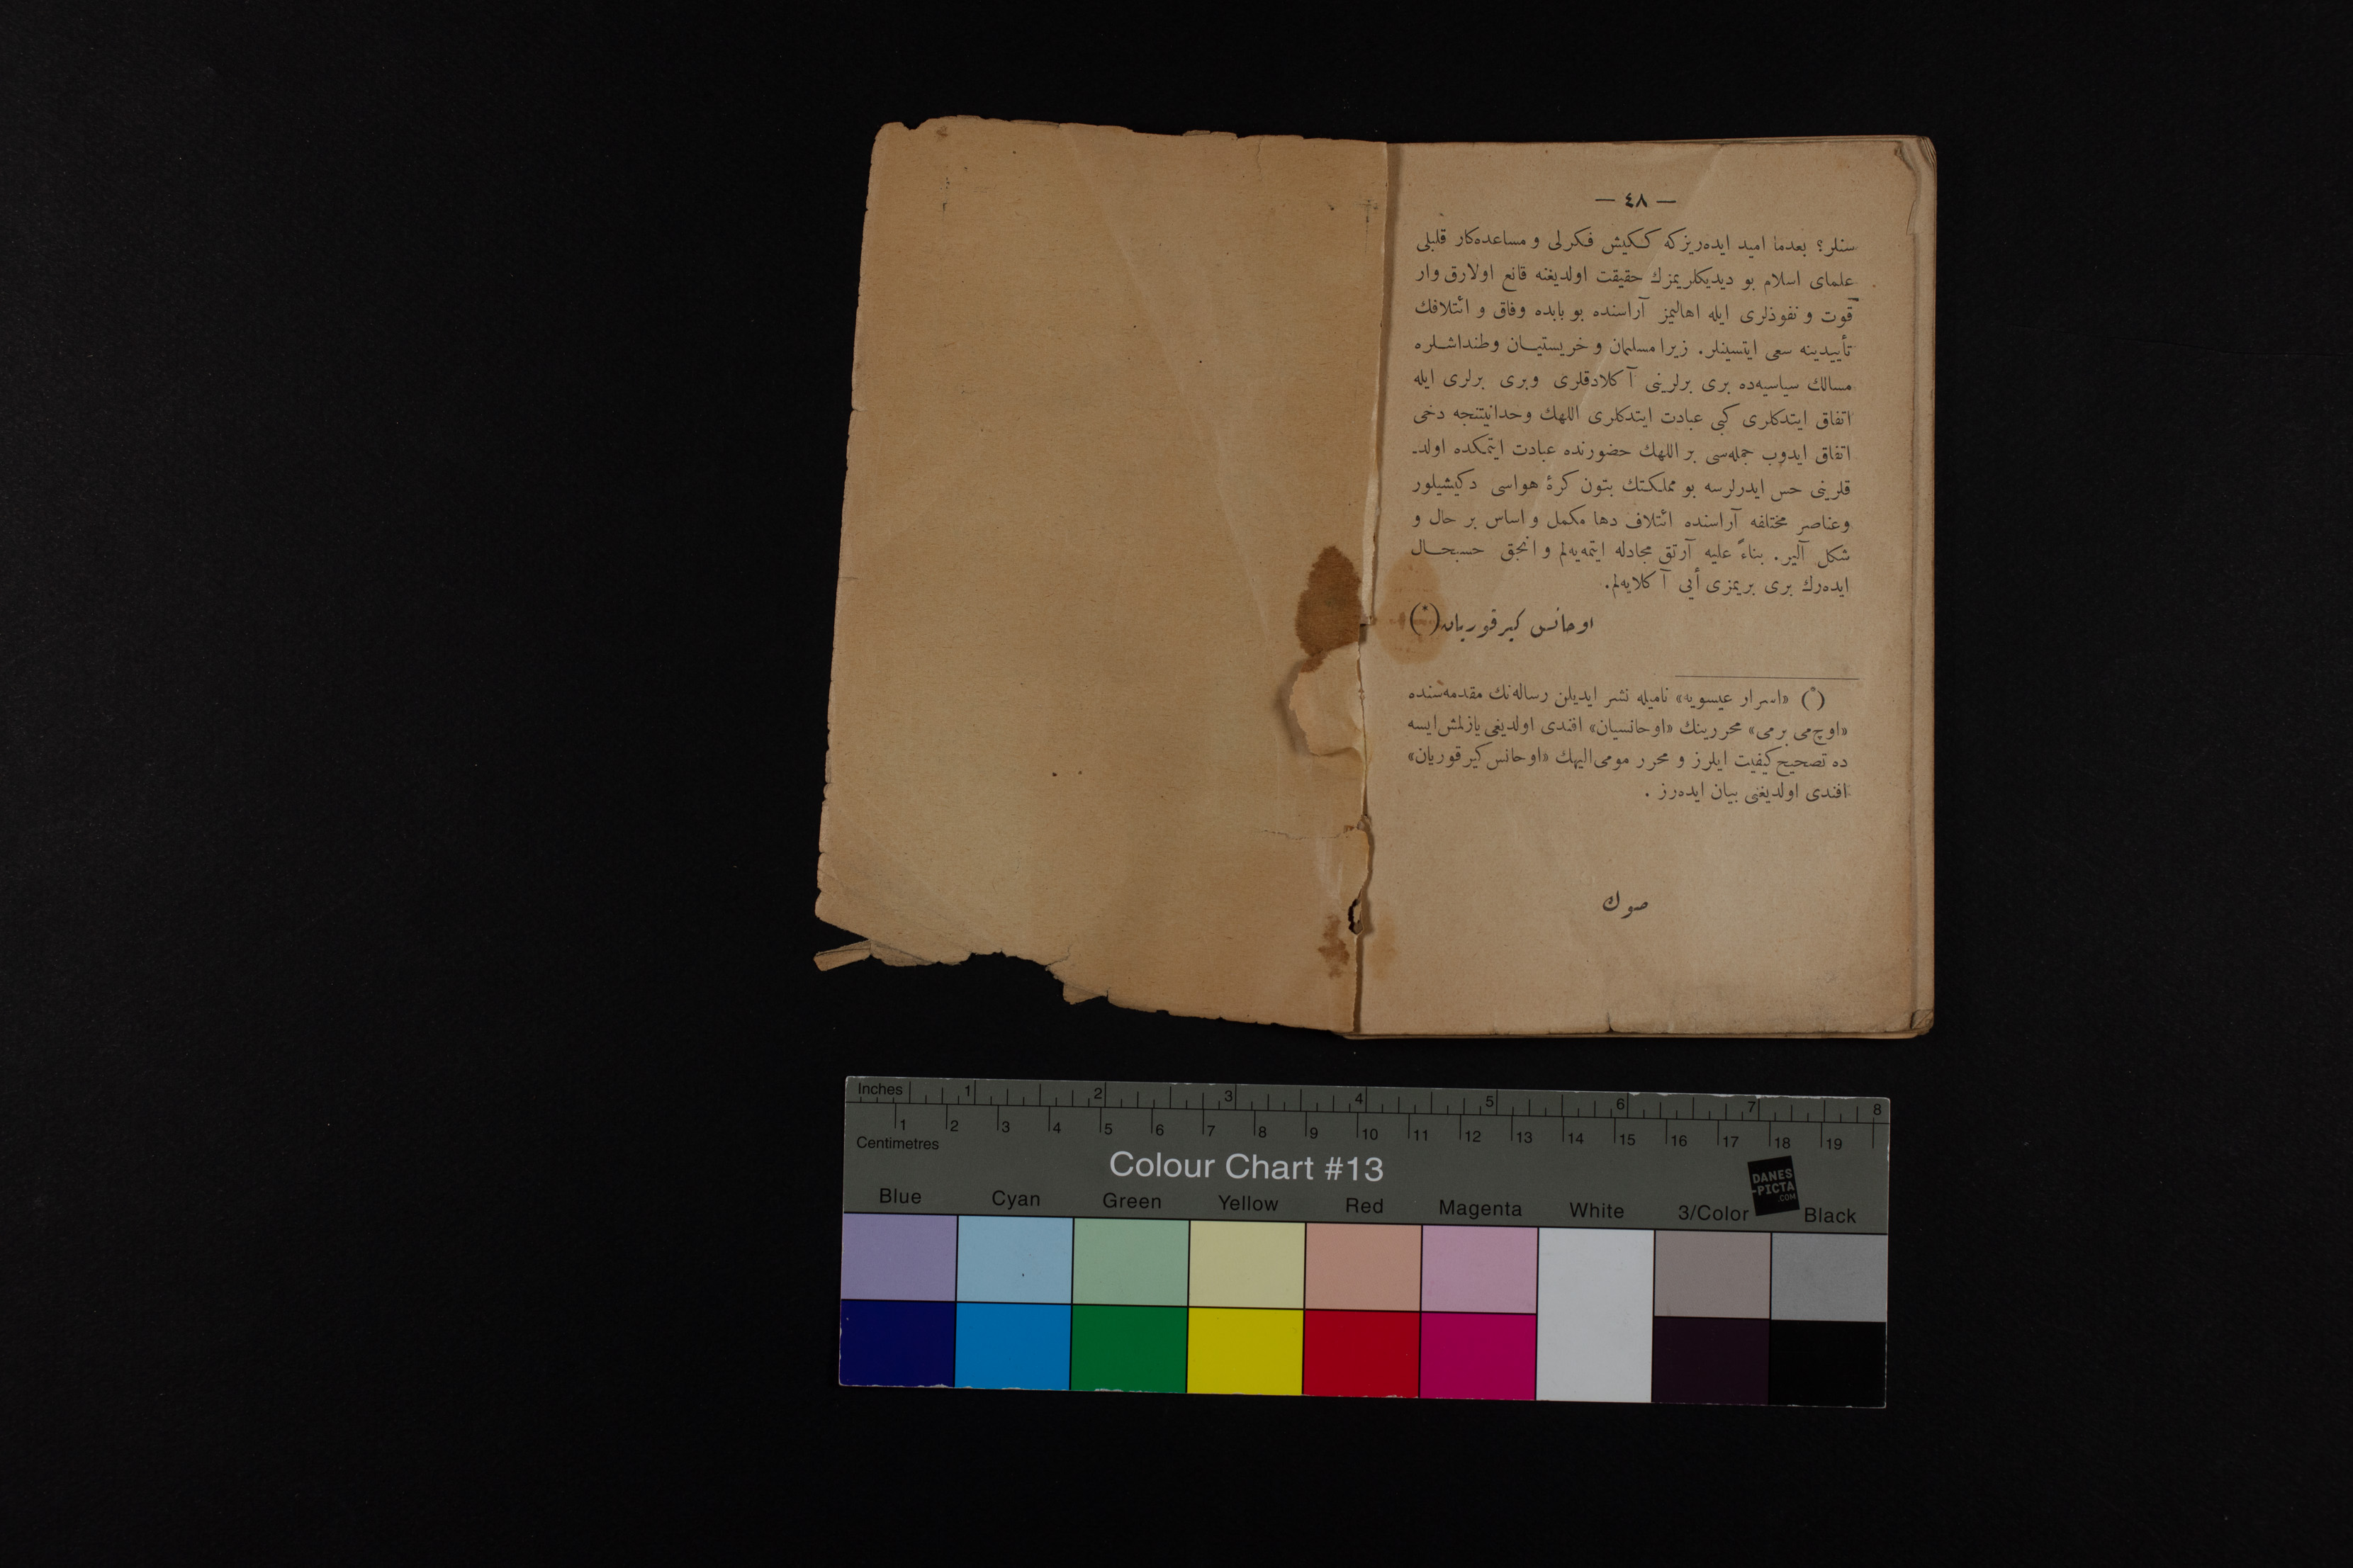 — ٤٨ —
سنلر؟ بعدما امید ایده‌ریزکه کـکیش فـکرلی و مساعده‌کار قلبلی
علمای اسلام بو دیدیکلریمزك حقیقت اولدیغنه قانع اولارق وار
قوت و نفوذلری ایله اهالیمز آراسنده بو بابده وفاق و ائتلافك
تأییدینه سعی ایتسینلر. زیرا مسلمان و خریستیـان وطنداشـلره
مسالك سیاسیه‌ده بری برلرینی آ کلادقلری وبری برلری ایله
اتفاق ایتدکلری کبی عبادت ایتدکلری اللهك وحدانیتنجه دخی
اتفاق ایدوب جمله‌سی بر اللهك حضورنده عبادت ایتمکده اولد-
قلرینی حس ایدرلرسه بو مملکتك بتون کرهٔ هواسی دکیشیلور
وعناصر مختلفه آراسنده ائتلاف دها مکمل و اساس بر حال و
شکل آلیر. بناءً علیه آرتق مجادله ایتمه‌یه‌لم و انجق حسبحـال
ایده‌رك بری بریمزی أیی آ کلایه‌لم.
اوحانس کیرقوریان (*)
(*) «اسرار عیسویه» نامیله نشر ایدیلن رساله‌نك مقدمه‌سنده
«اوچ‌می برمی» محررینك «اوحانسیان» افندی اولدیغی یازلمش ایسه
ده تصحیح کیفیت ایلرز و محرر مومی‌الیهك «اوحانس کیرقوریان»
افندی اولدیغنی بیان ایده‌رز .
صوك
Inches 1 2 3 4 5 6 7 8
1 2 3 4 5 6 7 8 9 10 11 12 13 14 15 16 17 18 19
Centimetres
Colour Chart #13
DANES
-PICTA
.COM
Blue Cyan Green Yellow Red Magenta White 3/Color Black